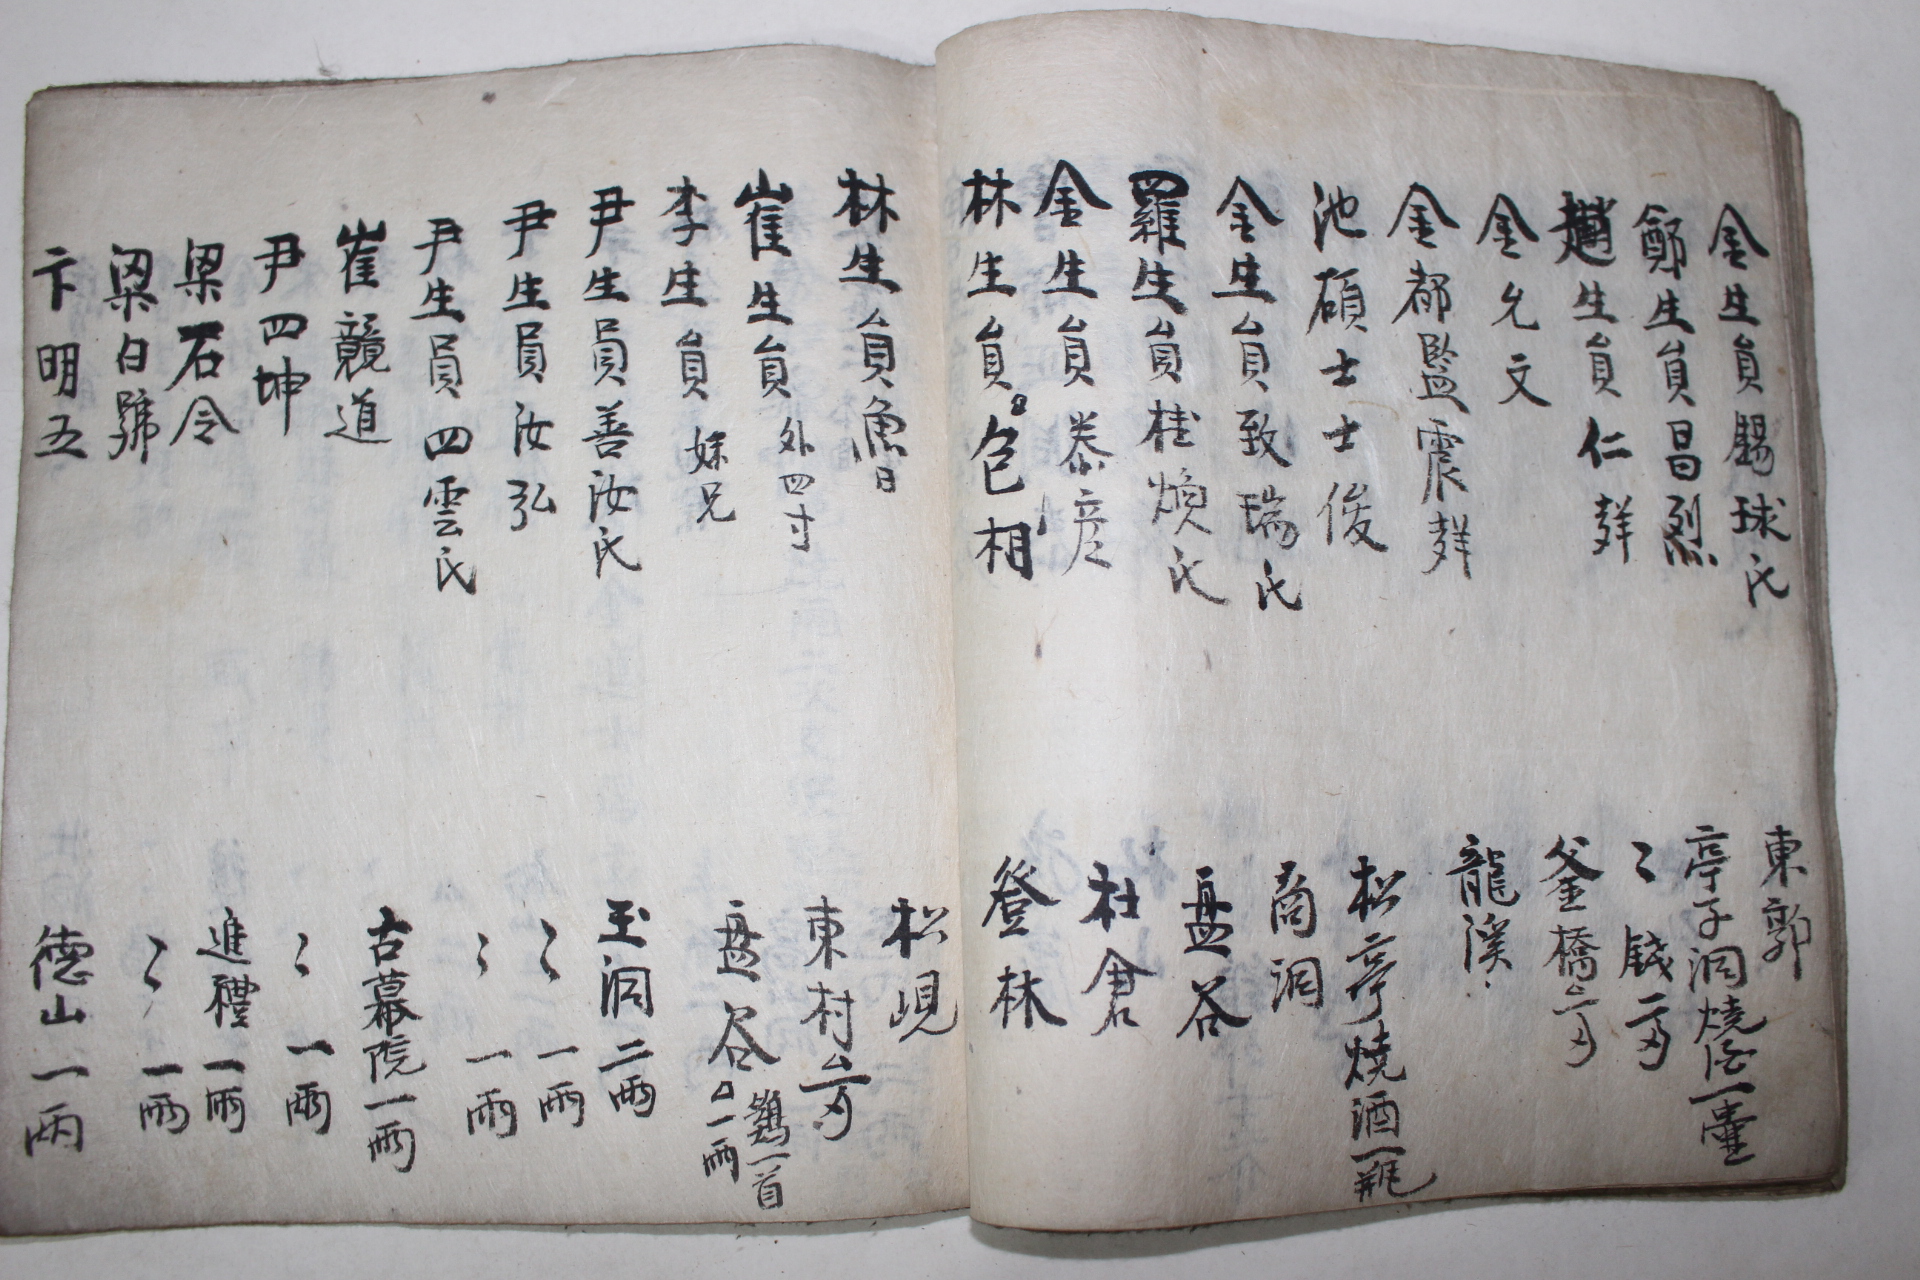 金生員賜球氏 東郭
鄭生員昌烈 亭子洞燒酒一壷
趙生員仁群 〻 錢二戔
金允文 釜橋二戔
金都監震群 龍溪
池碩士士俊 松亭燒酒一甁
金生員致瑞氏 商洞
羅生員桂煥氏 盘谷
金生員泰彦 社倉
林生員色相 登林
林生員漁日 松峴
崔生員外四寸 東村五戔
李生員妹兄 盘谷 鷄一首 一兩
尹生員善汝氏 玉洞二兩
尹生員汝弘 〻 一兩
尹生員四雲氏 〻 一兩
崔競道 古幕院一兩
尹四坤 〻 一兩
梁石令 進禮一兩
梁白號 〻 一兩
卞明五 德山一兩